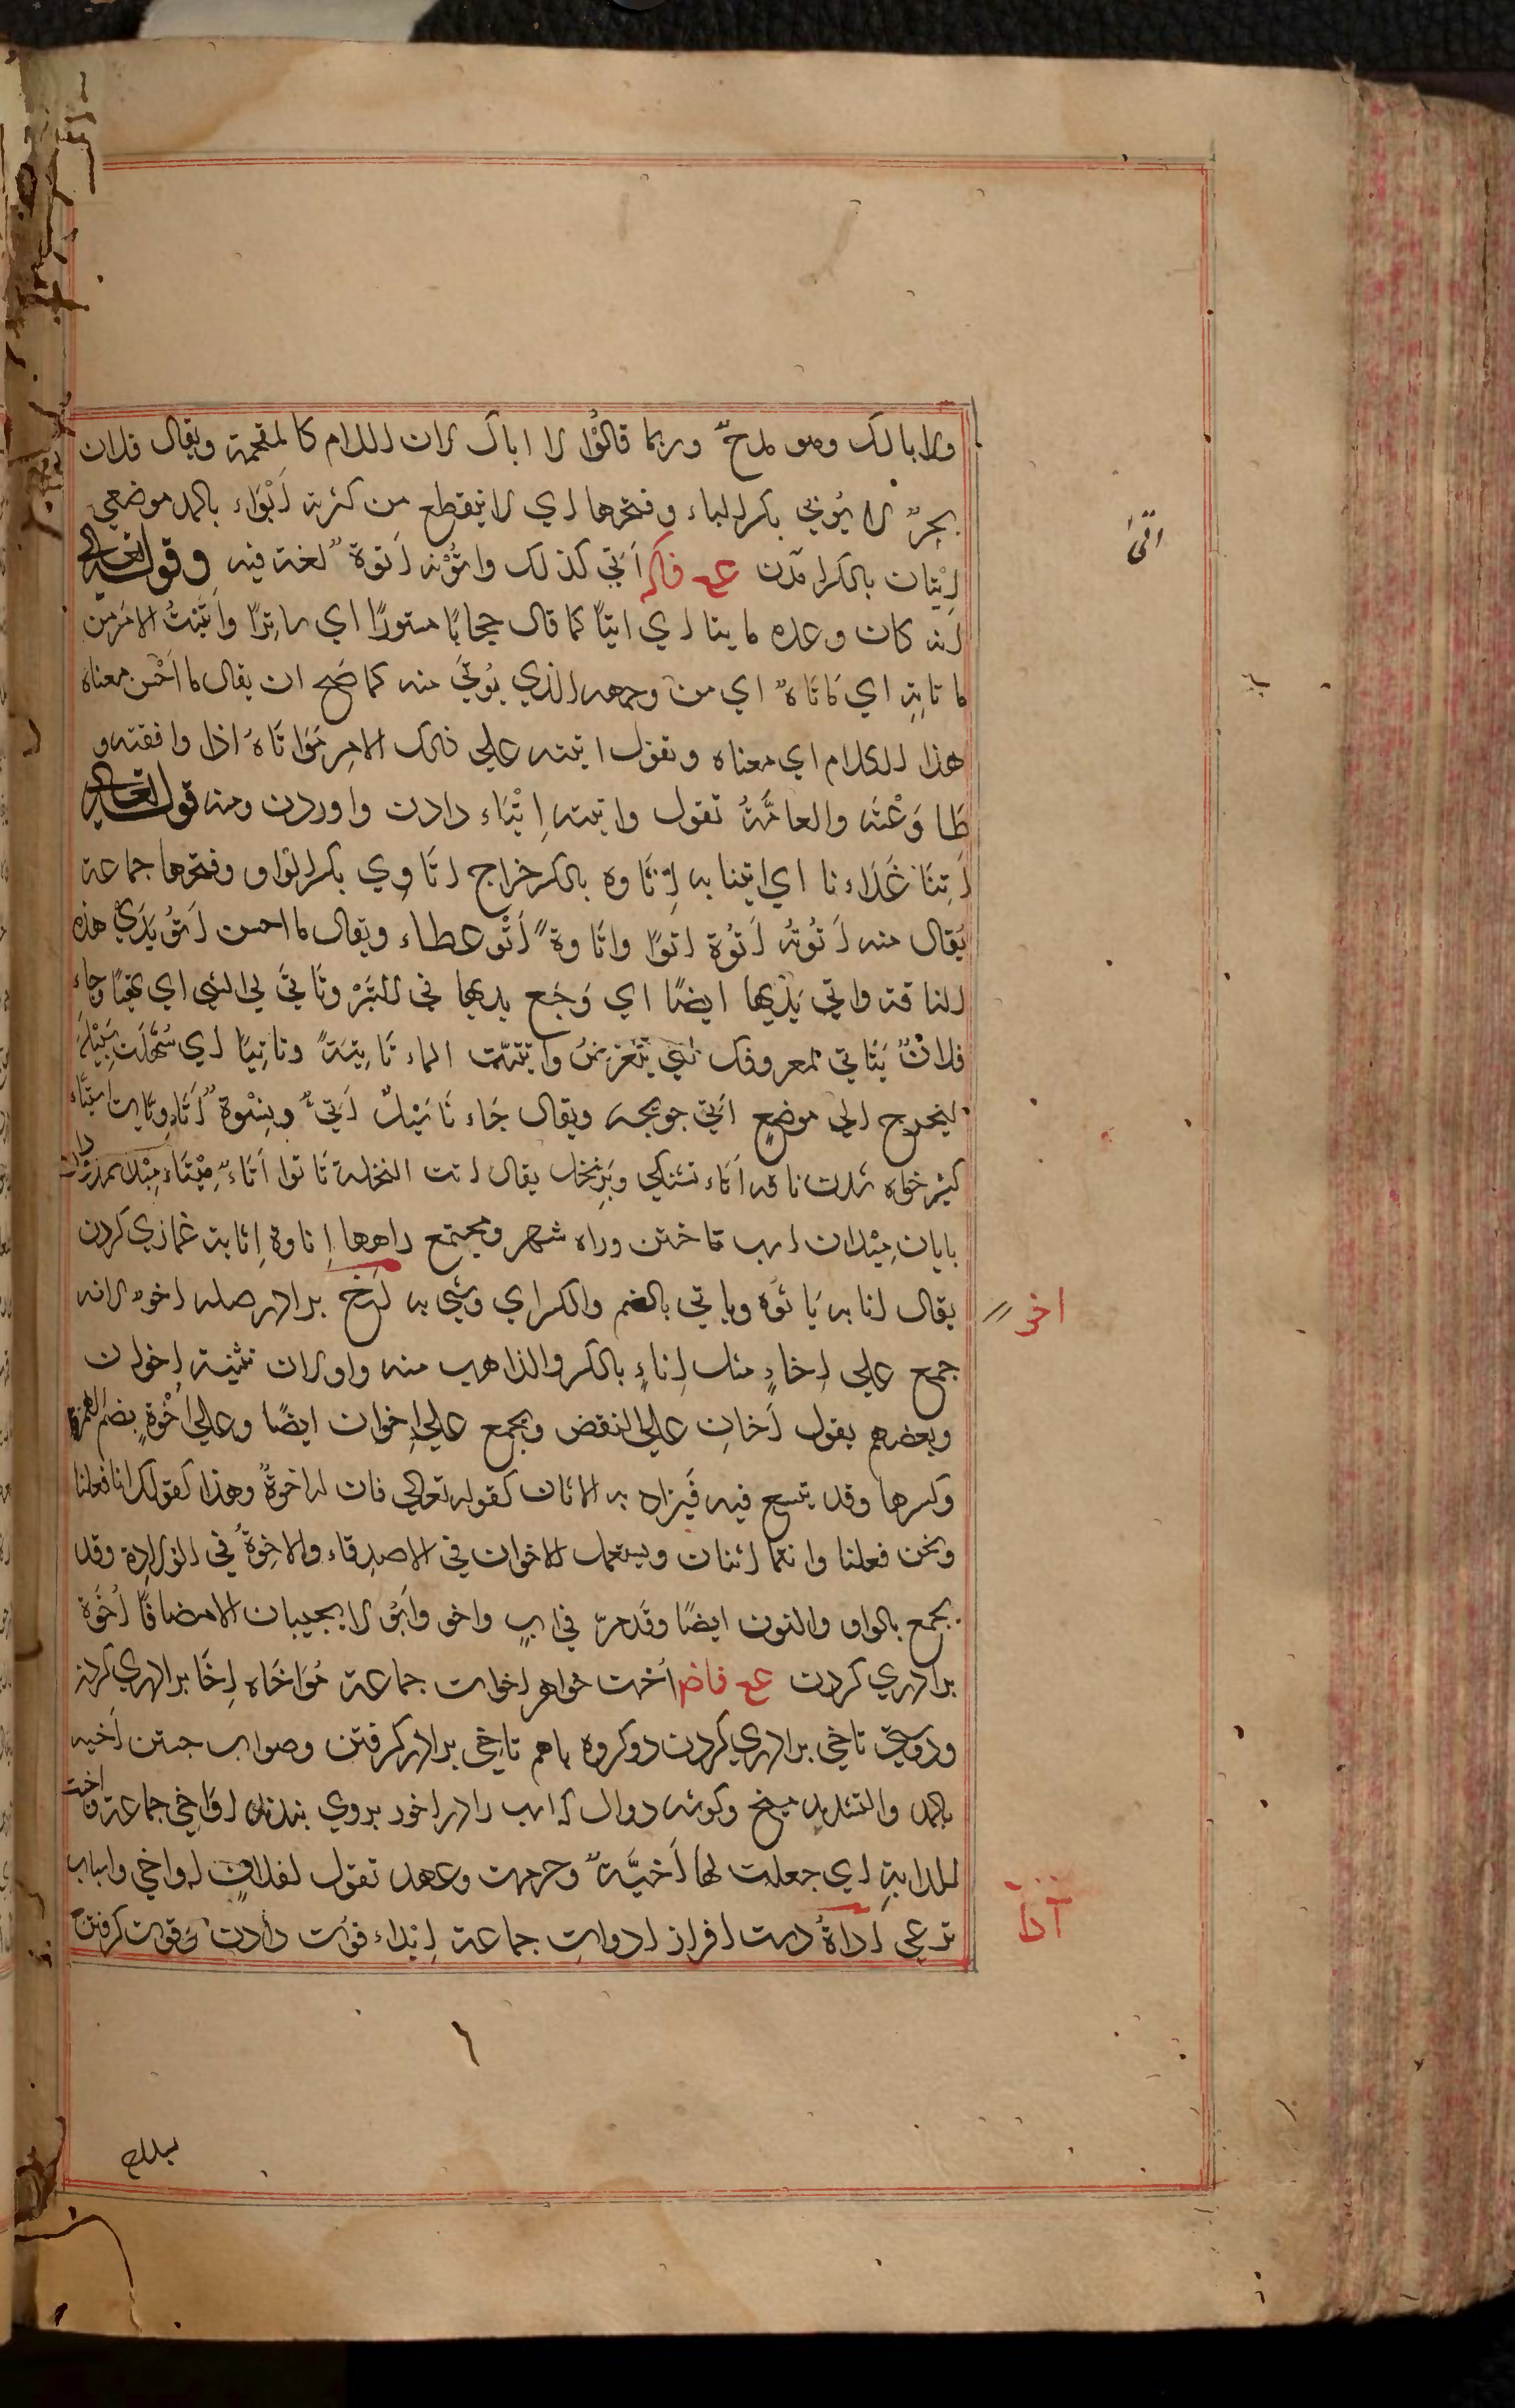 ولا ابا لك وهو مدح وربما قالوا لا اباك لان اللام كالمقحمة ويقال فلان
بحر لا يؤبي بكسر الباء وفتحها اي لا ينقطع من كثرته ابواء بالمد موضعي
اتى
اتيان بالكسر آمدن ع فاكر اتي كذلك واتوته اتوة لغة فيه وقوله تعالى
انه كان وعده ماتيا اي اتيا كما قال حجابا مستورا اي ساترا واتيت الامر من
ماتاته اي ماتاه اي من وجهه الذي يؤتى منه كما صح ان يقال ما احسن معناة
هذا الكلام اي معناه وتقول اتيته علي ذلك الامر مواتاة اذا وافقته و
طاوعته والعامة تقول واتيته ايتاء دادن واوردن ومنه قوله تعالى
اتنا غداءنا اي ايتنا به اتاوه بالكسر خراج اتاوي بكسر الواو وفتحها جماعة
يقال منه اتوته اتوة اتوا واتاوة اتو عطاء ويقال ما احسن اتو يدي هذه
الناقة واتي يديها ايضا اي رجع يديها في السير وتاتى لي الشي اي تهيا وجاء
فلان يتاتي لمعروفك اي يتعرض واتيت الماء تاتية وتاتيا اي سهلت سبيله
ليخرج الي موضع اتي جويجه ويقال جاءنا سيل اتي
كثير خواه شدن ناقه اتاء يقال اتت النخلة تاتوا اتاء ميتاء
بايان ميدان اسب تاختن وراه شهر ومجتمع راهها اثاوة اثاية غمازي كردن
اخو
يقال اثا به ياثوه وياثي بالضم والكسر اي وشي به اخ برادر اصله اخو لانه
جمع علي اخاء مثل اباء بالكسر والذاهب منه واو لان تثنيته اخوان
وبعضهم يقول اخان علي النقض ويجمع علي اخوان ايضا وعلي اخوة بضم الهمزة
وكسرها وقد يتسع فيه فيراد به الاثنان كقوله تعالي فان له اخوة وهذا كقولك انا فعلنا
ونحن فعلنا وانتما اثنان ويستعمل الاخوان في الاصدقاء والاخوة في الولادة وقد
يجمع بالواو والنون ايضا وقد مر في اب واخو وابو لا يجيبان الا مضافا اخوة
برادري كردن ع فاض اخت خواهر اخوات جماعة مواخاه اخا برادري كردن
ودوستي تاخي برادري كردن دو كروه باهم تاخي برادر كرفتن وصواب جستن اخيه
بالمد والتشديد ميخ وكوشه دوال كه اسب را در اخور بروي بندند اواخي جماعة
للدابة اي جعلت لها اخية وحرمت وعهد تقول لفلان اواخي واسباب
آدا
ترعي اداة دست افزار ادوات جماعة ايداء قوت دادن وقوت كرفتن